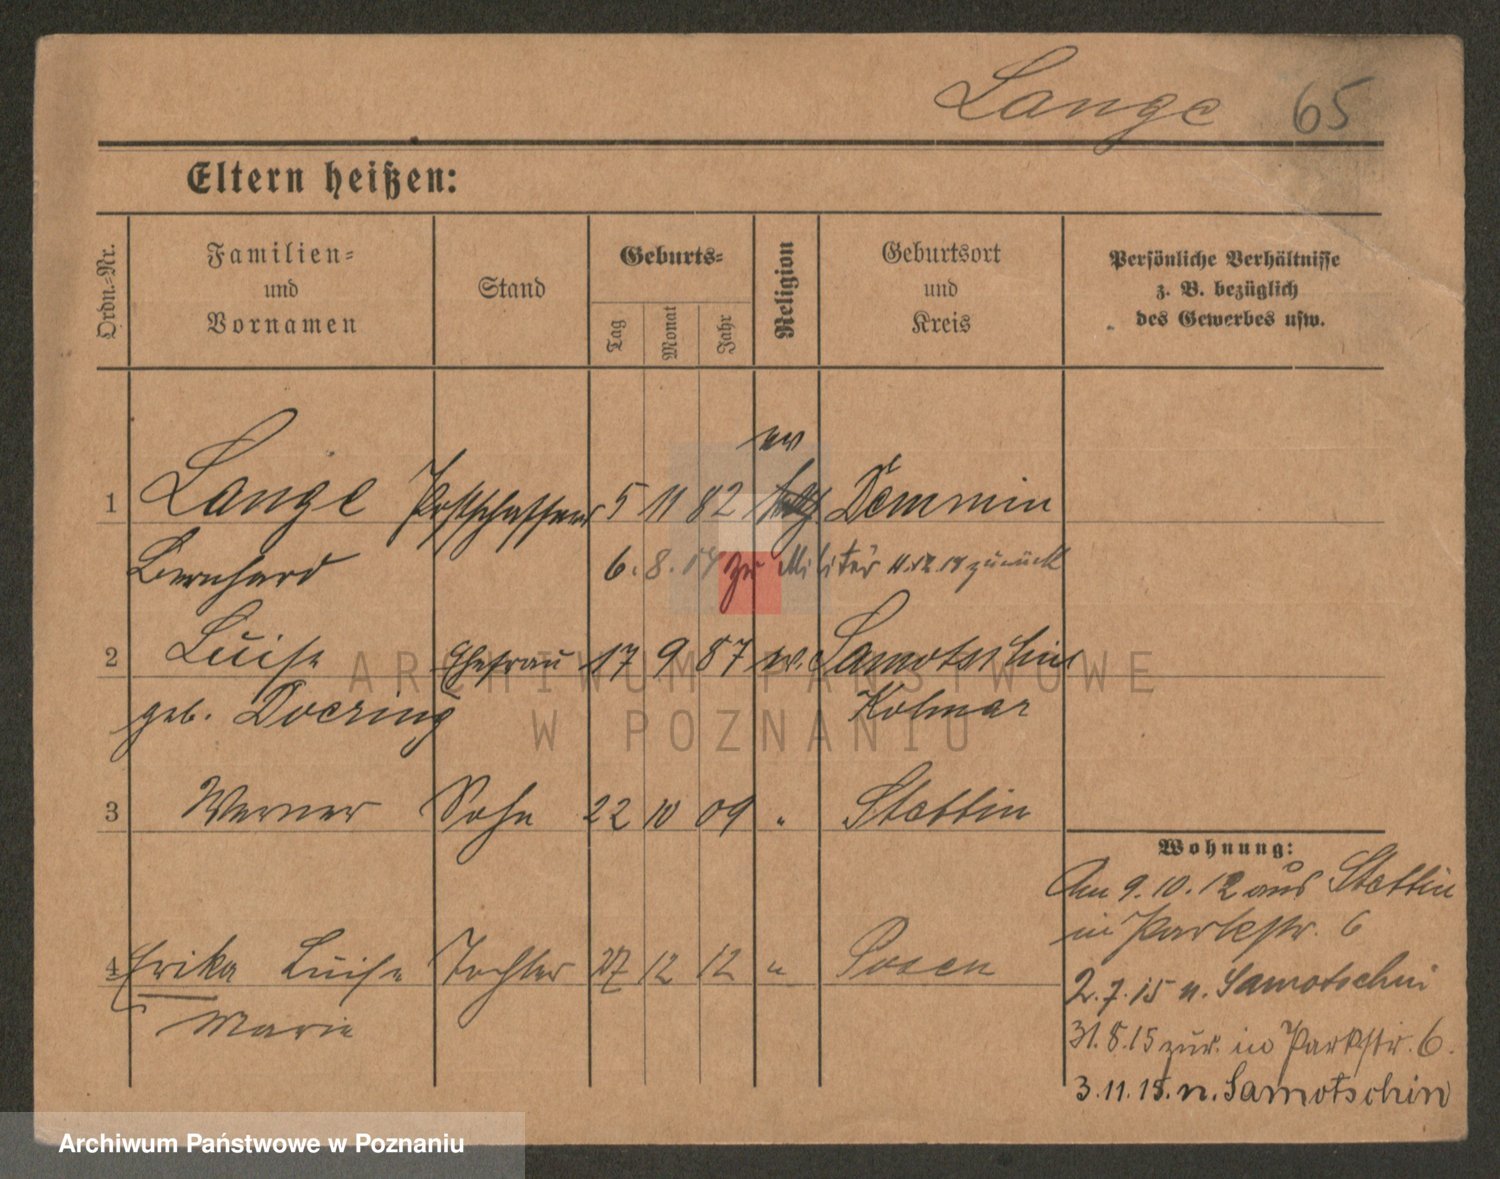 Lange 65
Eltern heißen:
Ordn.-Nr.
Familien-
und
Vornamen
Stand
Geburts-
Tag
Monat
Jahr
Religion
Geburtsort
und
Kreis
Persönliche Verhältnisse
z. B. bezüglich
des Gewerbes usw.
ev
1 Lange Postschaffner 5 11 82 Demmin
Bernhard 6. 8. 14 zu Militär zurück
2 Luise Ehefrau 17 9 87 ev. Samotschin
geb. Doering Kolmar
3 Werner Sohn 22 10 09 " Stettin
Wohnung:
Am 9. 10. 12 aus Stettin
in Parkstr. 6
4 Erika Luise Tochter 27 12 12 " Posen
Marie
2. 7. 15 n. Samotschin
31. 8. 15 zur. in Parkstr. 6.
3. 11. 15. n. Samotschin
ARCHIWUM PAŃSTWOWE
W POZNANIU
Archiwum Państwowe w Poznaniu